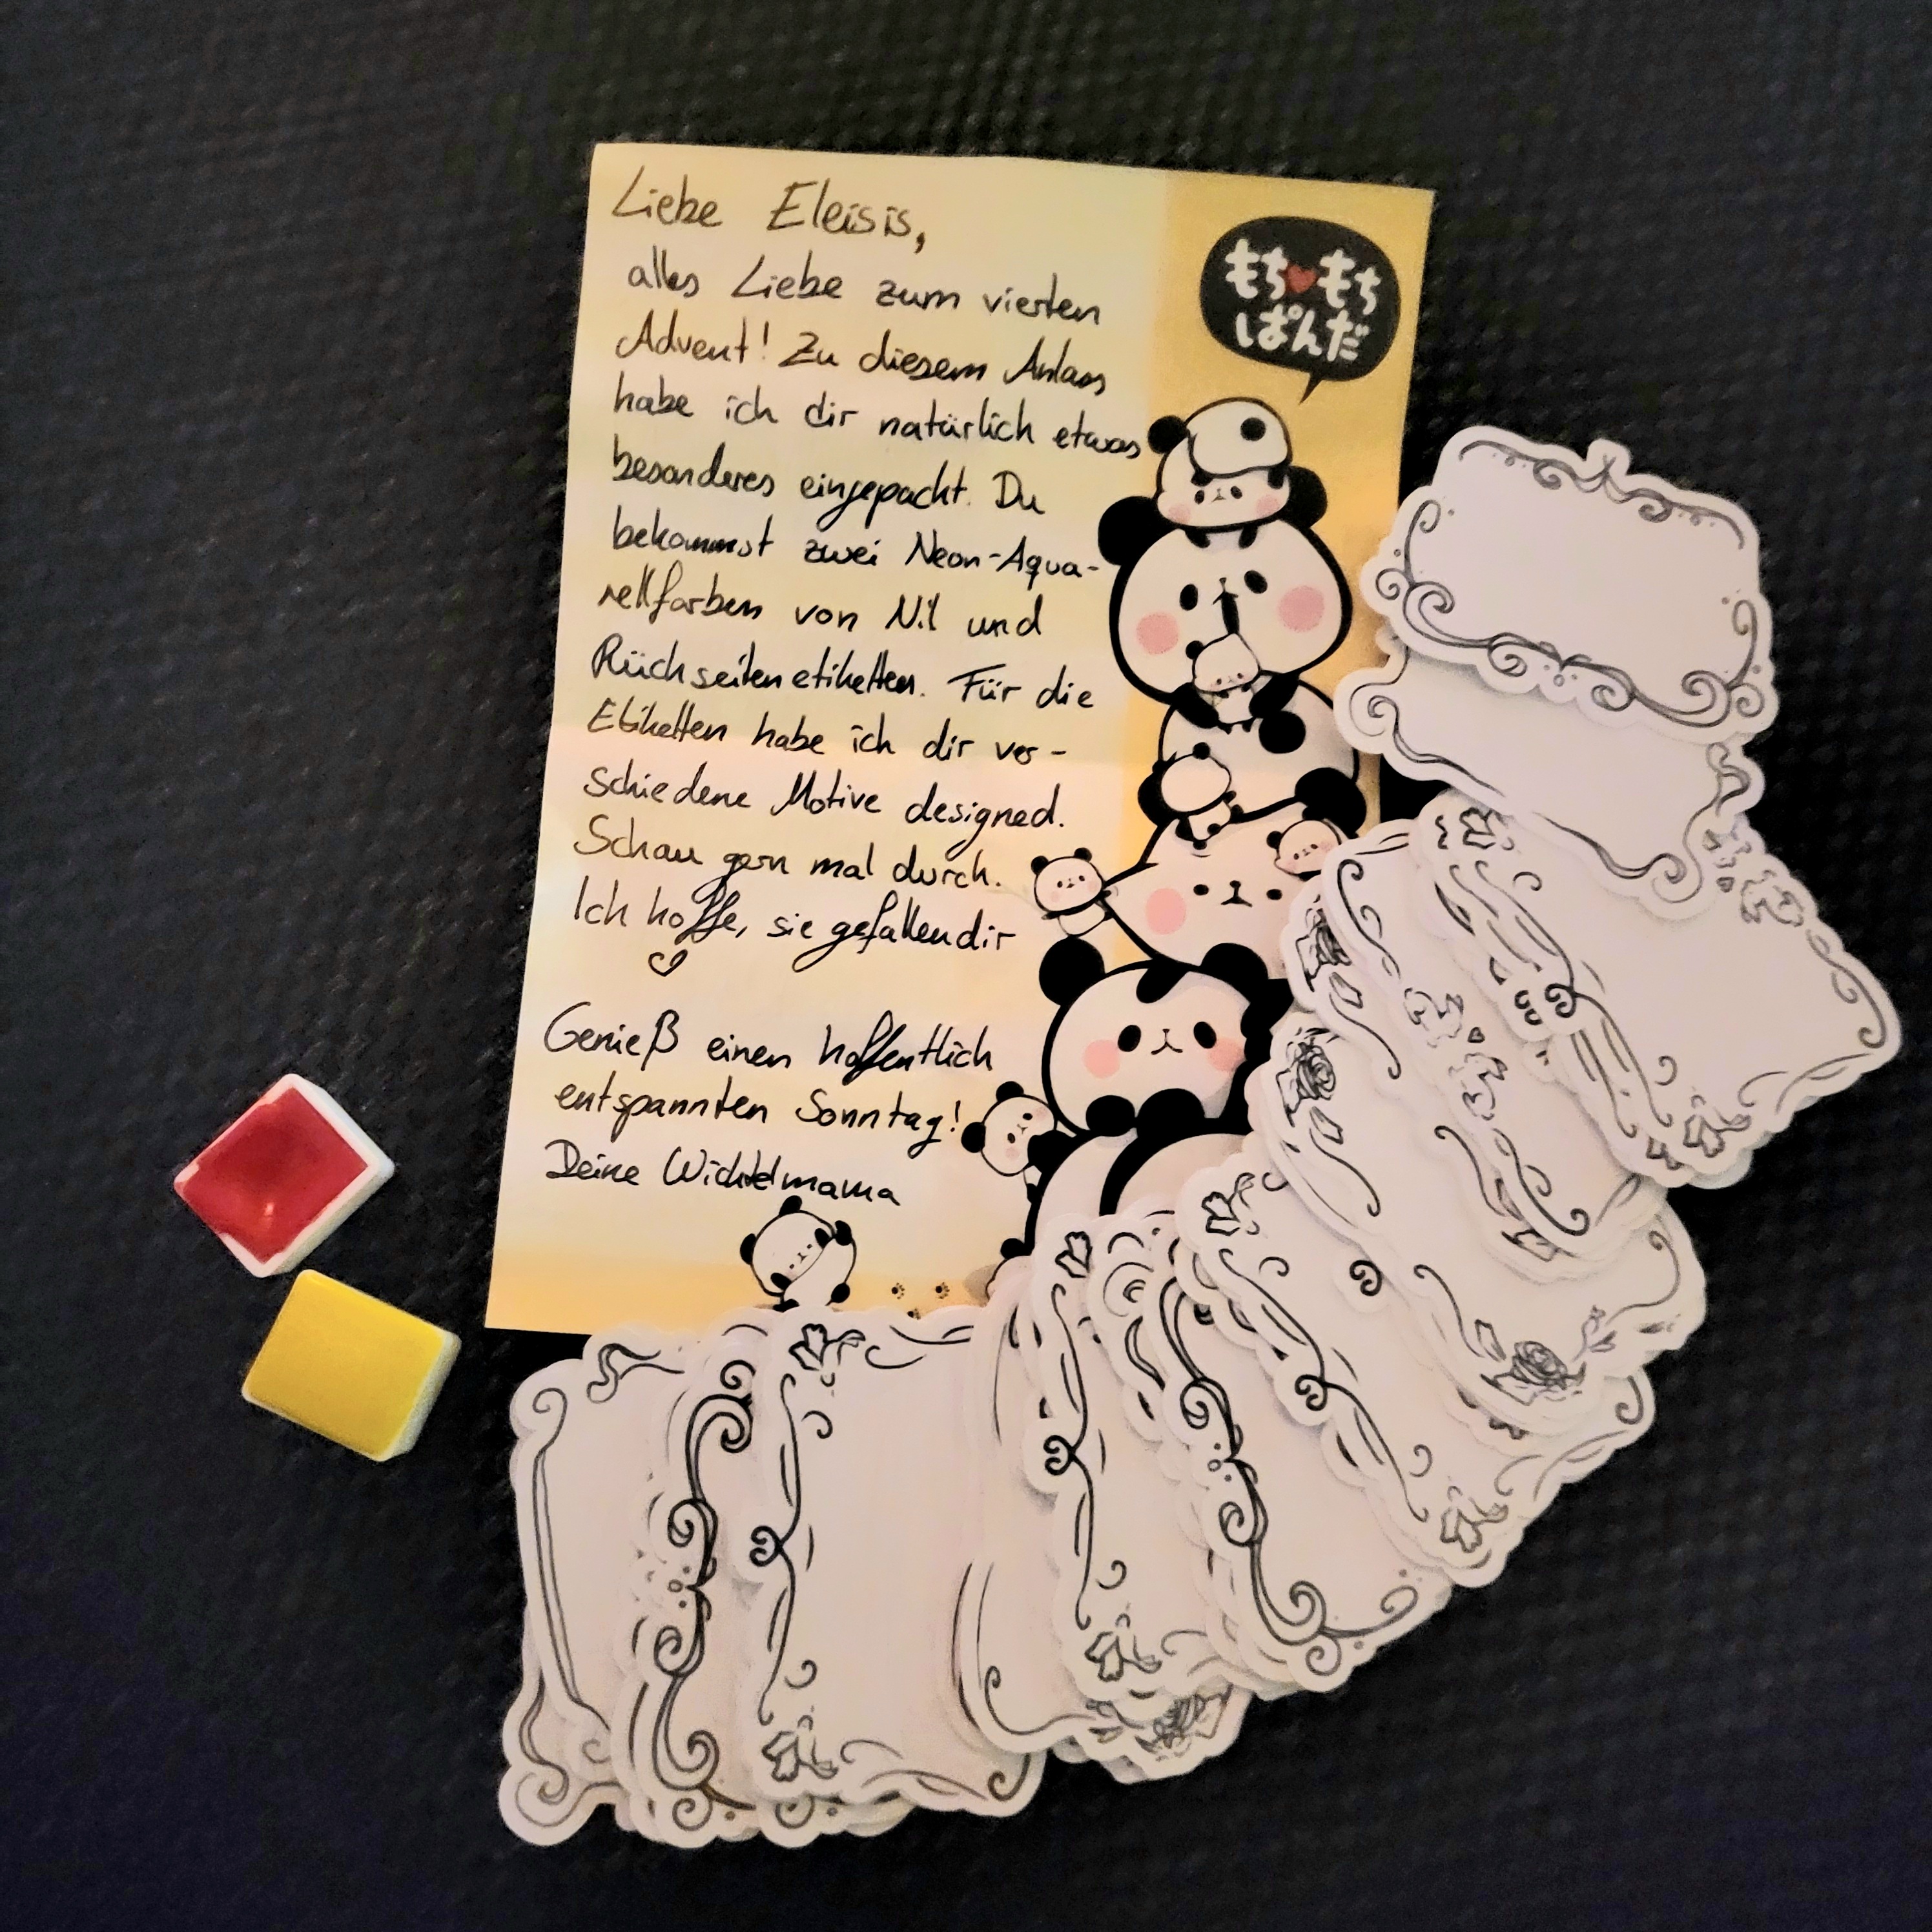 Liebe Eleisis,
alles Liebe zum vierten
Advent! Zu diesem Anlass
habe ich dir natürlich etwas
besonderes eingepackt. Du
bekommst zwei Neon-Aqua-
rellfarben von Nil und
Rückseitenetiketten. Für die
Etiketten habe ich dir ver-
schiedene Motive designed.
Schau gern mal durch.
Ich hoffe, sie gefallen dir
Genieß einen hoffentlich
entspannten Sonntag!
Deine Wichtelmama
もち♥もち
ぱんだ